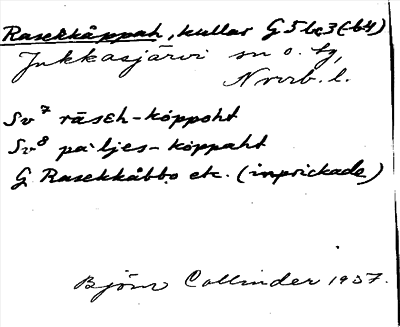 Rasekkåppah, kullar G5bc3(-b4)
Jukkasjärvi sn o. tg,
Norrb. l.
Sv⁷ räseh-koppoht
Sv⁸ pa·ljes-koppaht
G Rasekkåbbo etc. (inprickade)
Björn Collinder 1937.